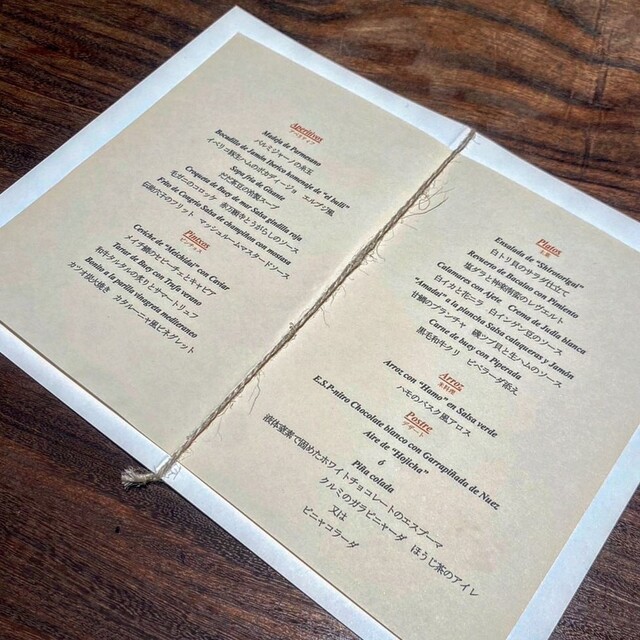 Aperitivos
アペリティフ
Moshi de Parmesano
パルミジャーノのお玉
Bocadillo de Jamón Iberico homenaje de "el bulli"
イベリコ豚生ハムのボカディージョ エルブジ風
Sopa fría de Guisante
うすい豆の冷製スープ
Croqueta de Buey de mar Salsa guindilla roja
毛ガニのコロッケ 赤唐辛子のソース
Frito de Congrio Salsa de champiñon con mostaza
伝助穴子のフリット マッシュルームマスタードソース
Pinxos
ピンチョス
Ceviche de "Meichidai" con Caviar
メイチ鯛のセビーチェとキャビア
Tartar de Buey con Trufa verano
和牛タルタルの炙りとサマートリュフ
Bonito a la parilla vinagreta mediterraneo
カツオ炭火焼き
Platos
主菜
Ensalada de "Shirotorigai"
白トリ貝のサラダ仕立て
Revuelto de Bacalao con Pimiento
Calamares con Ajete, Crema de Judia blanca
白イカと
"Amadai" a la plancha Salsa calluqueras y Jamón
甘鯛のプランチャ
Carne de buey con Piperada
黒毛和牛 ピペラーダ添え
Arroz
米料理
Arroz con "Hamo" en Salsa verde
ハモのバスク風アロス
Postre
デザート
E.S.P-nitro Chocolate blanco con Garrapiñada de Nuez
Aire de "Hojicha"
ó
Piña colada
液体窒素で固めたホワイトチョコレートのエスプーマ
クルミのガラピニャーダ ほうじ茶のアイレ
又は
ピニャコラーダ